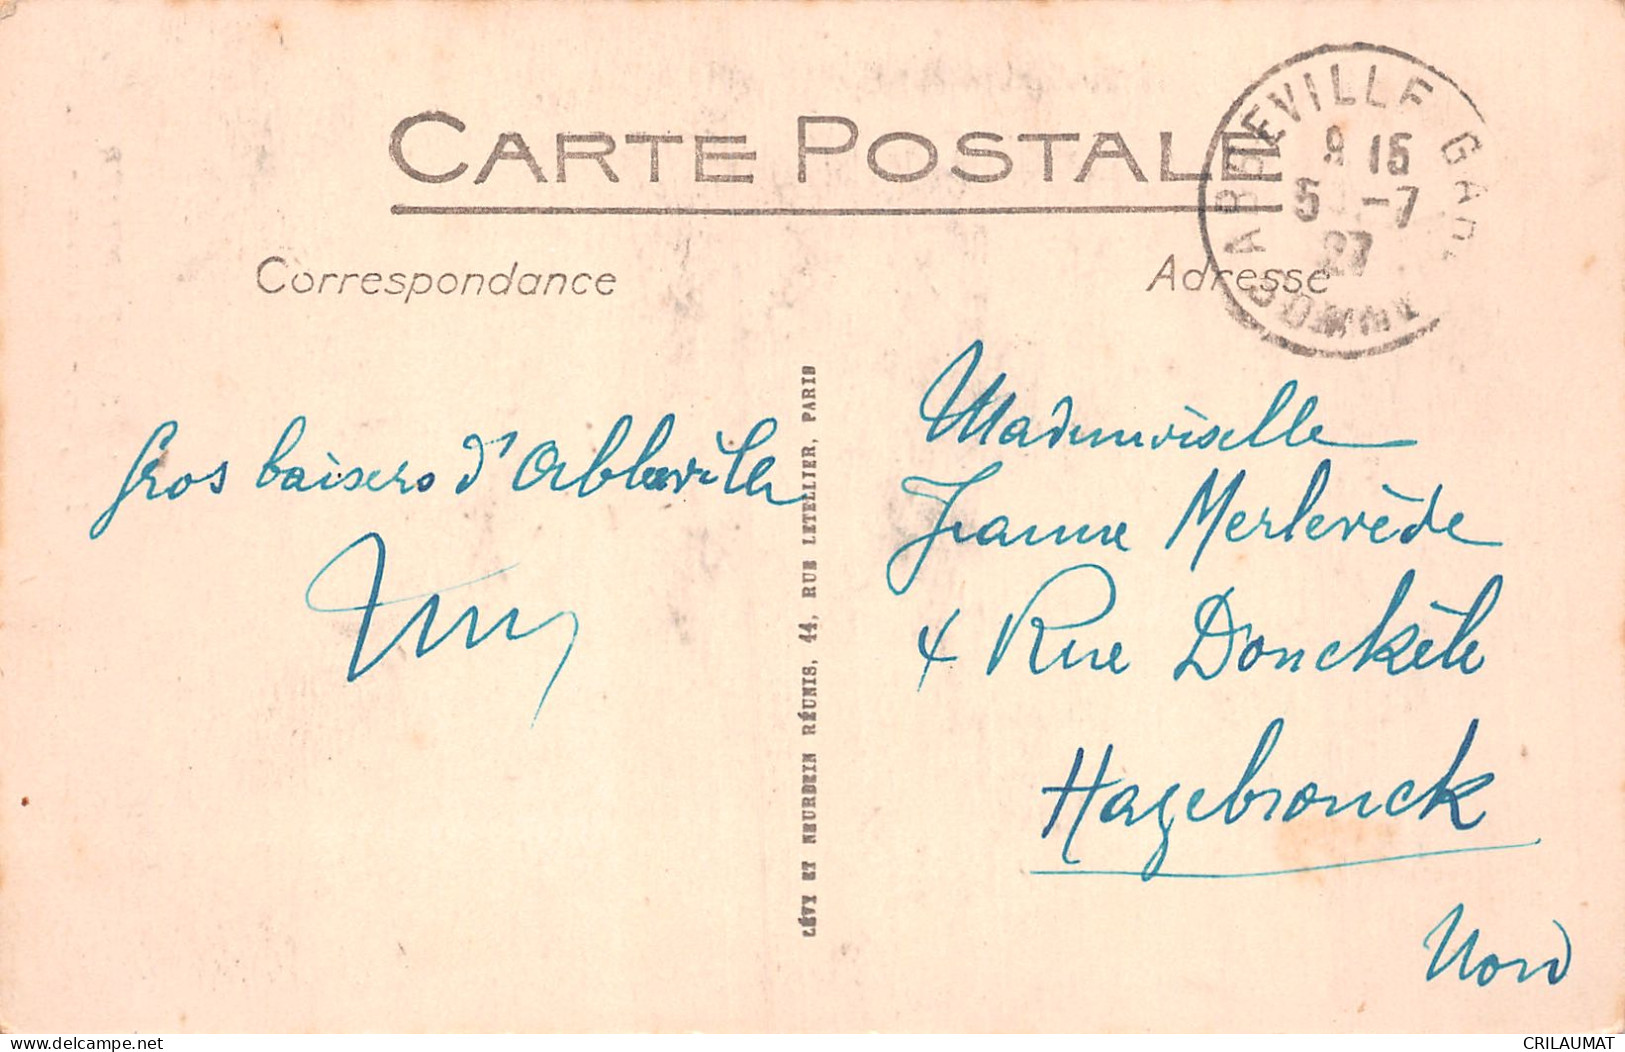 CARTE POSTALE
Correspondance
Adresse
ABBEVILLE GARE
9 15
5 -7
27
SOMME
Gros baisers d'Abbeville
Mademoiselle
Jeanne Merlevède
4 Rue Donckèle
Hazebrouck
Nord
LÉVY ET NEURDEIN RÉUNIS, 44, RUE LETELLIER, PARIS
delcampe.net
CRILAUMAT